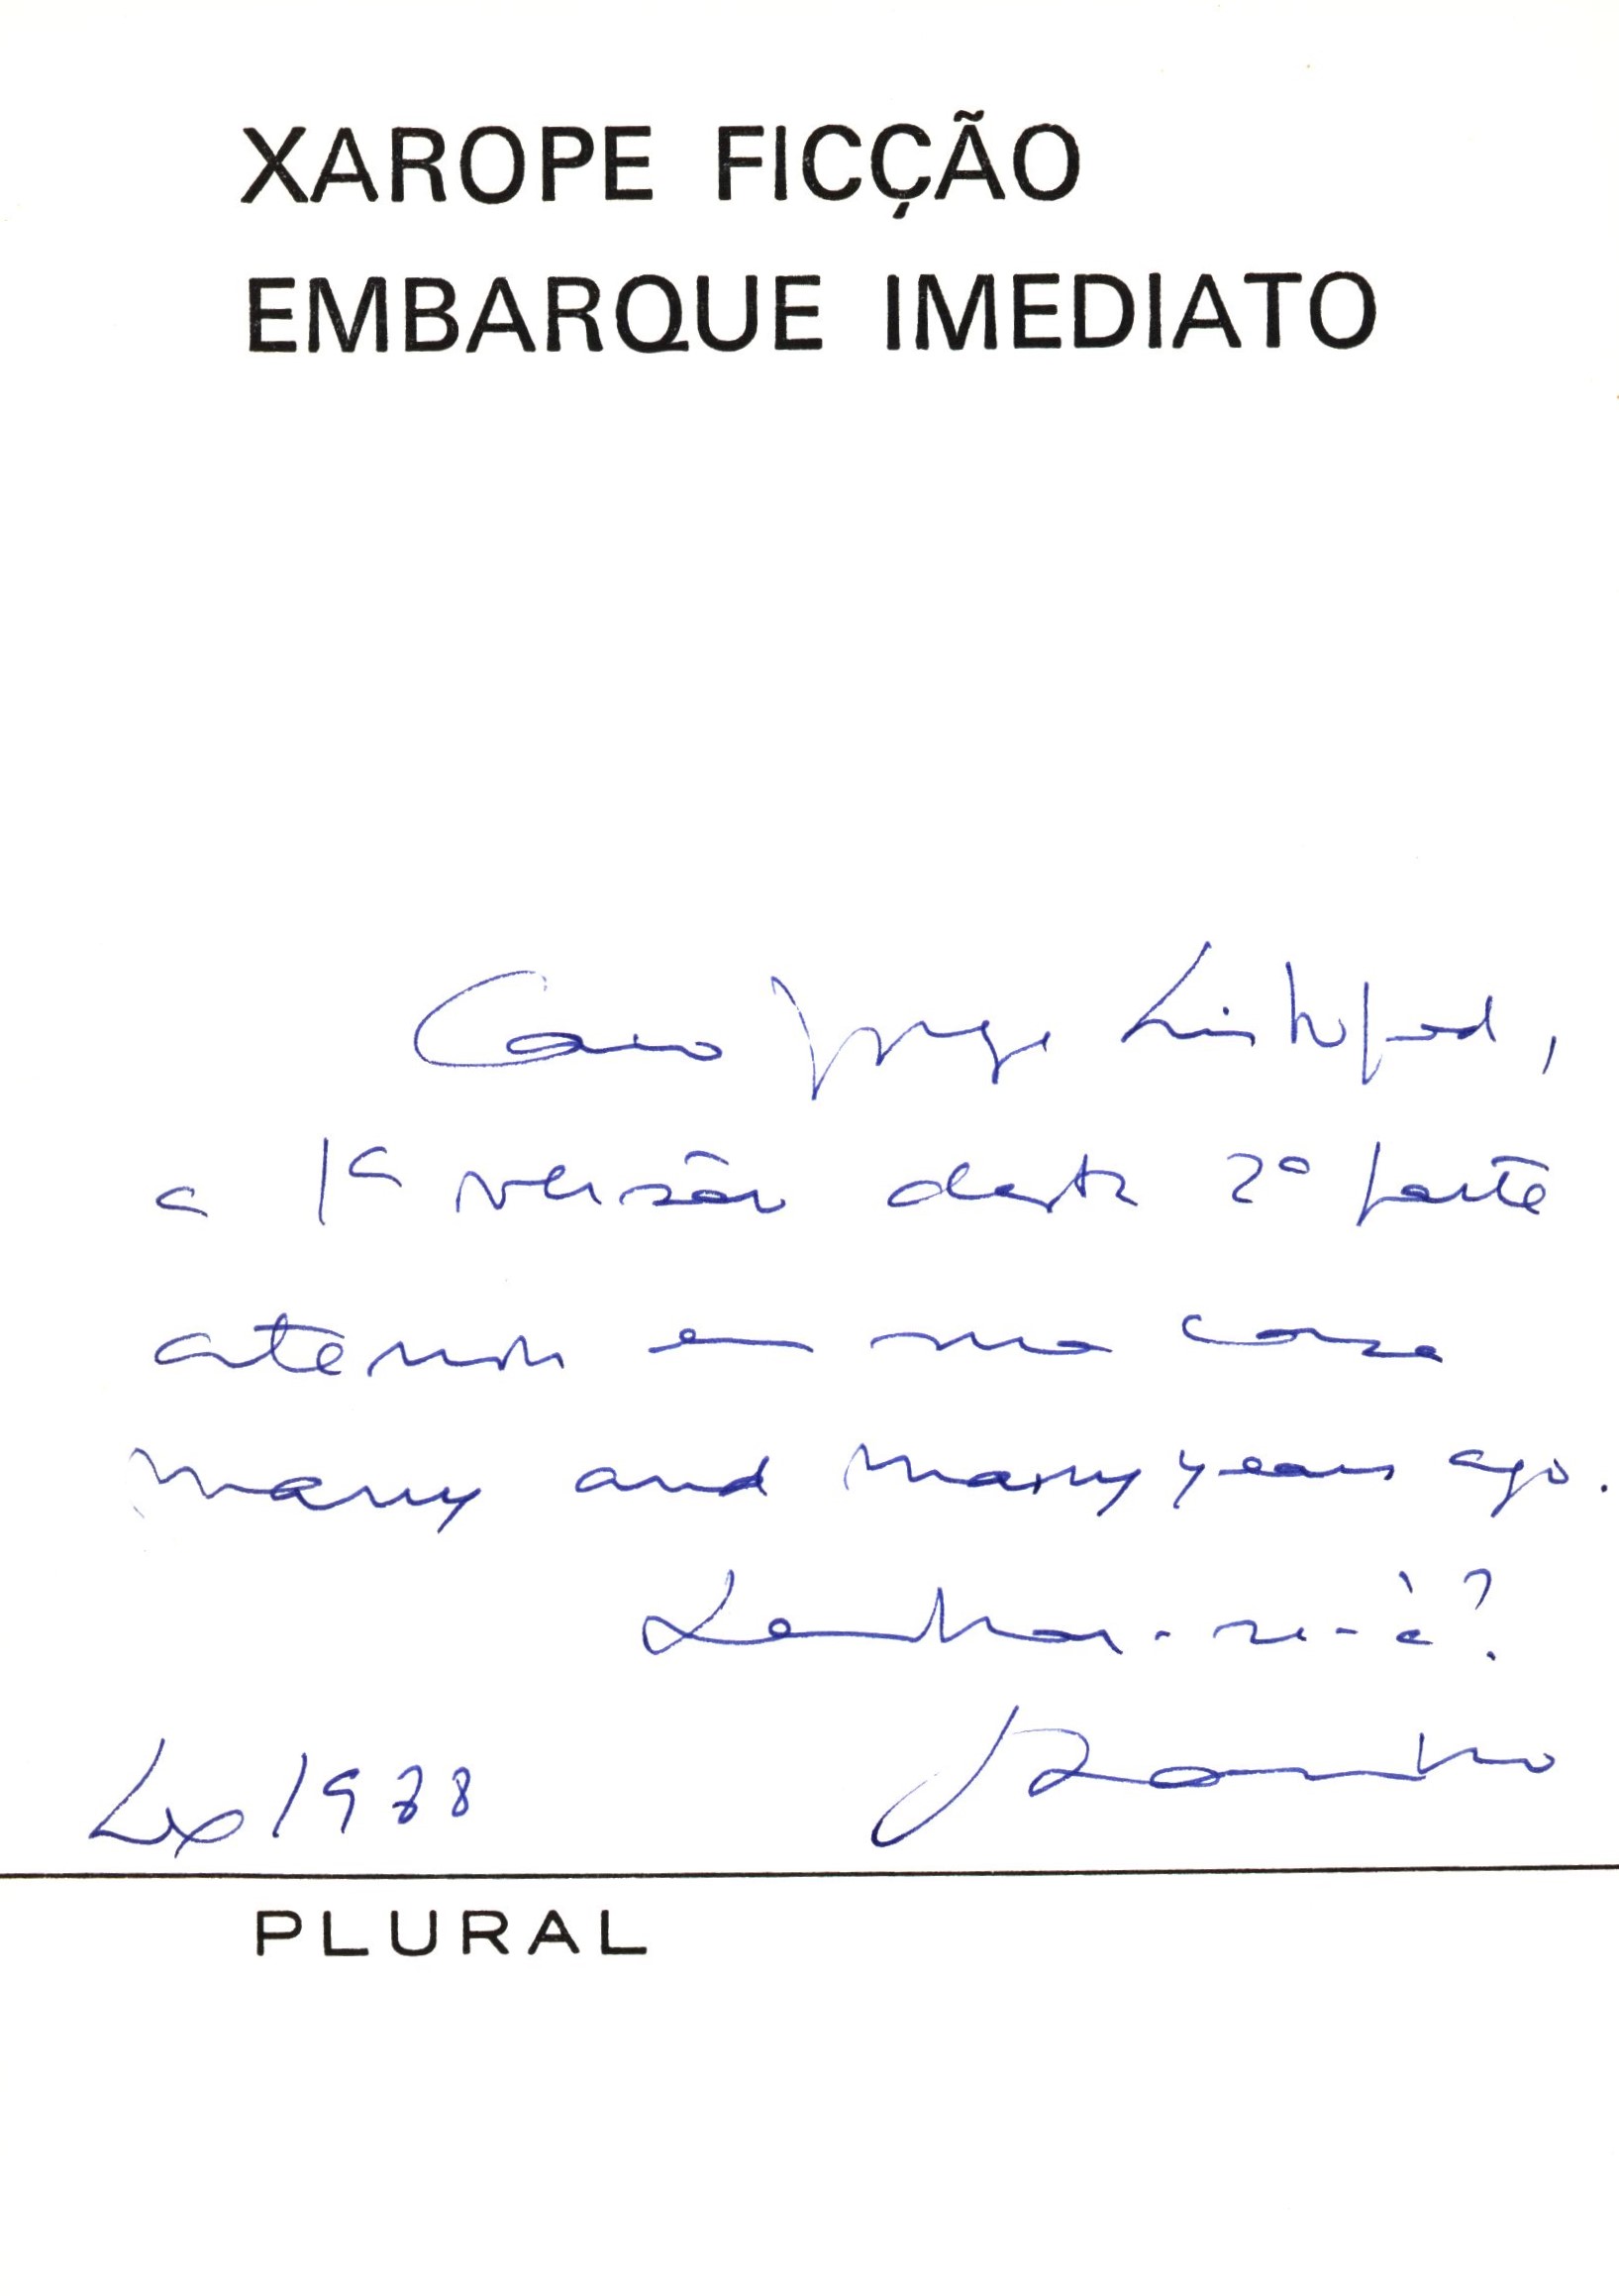 XAROPE FICÇÃO
EMBARQUE IMEDIATO
Caro Jorge Listopad,
a 1ª versão desta 2ª parte
aterrou em sua casa
many and many years ago.
Lembrar-se-á?
Lx 1988
PLURAL